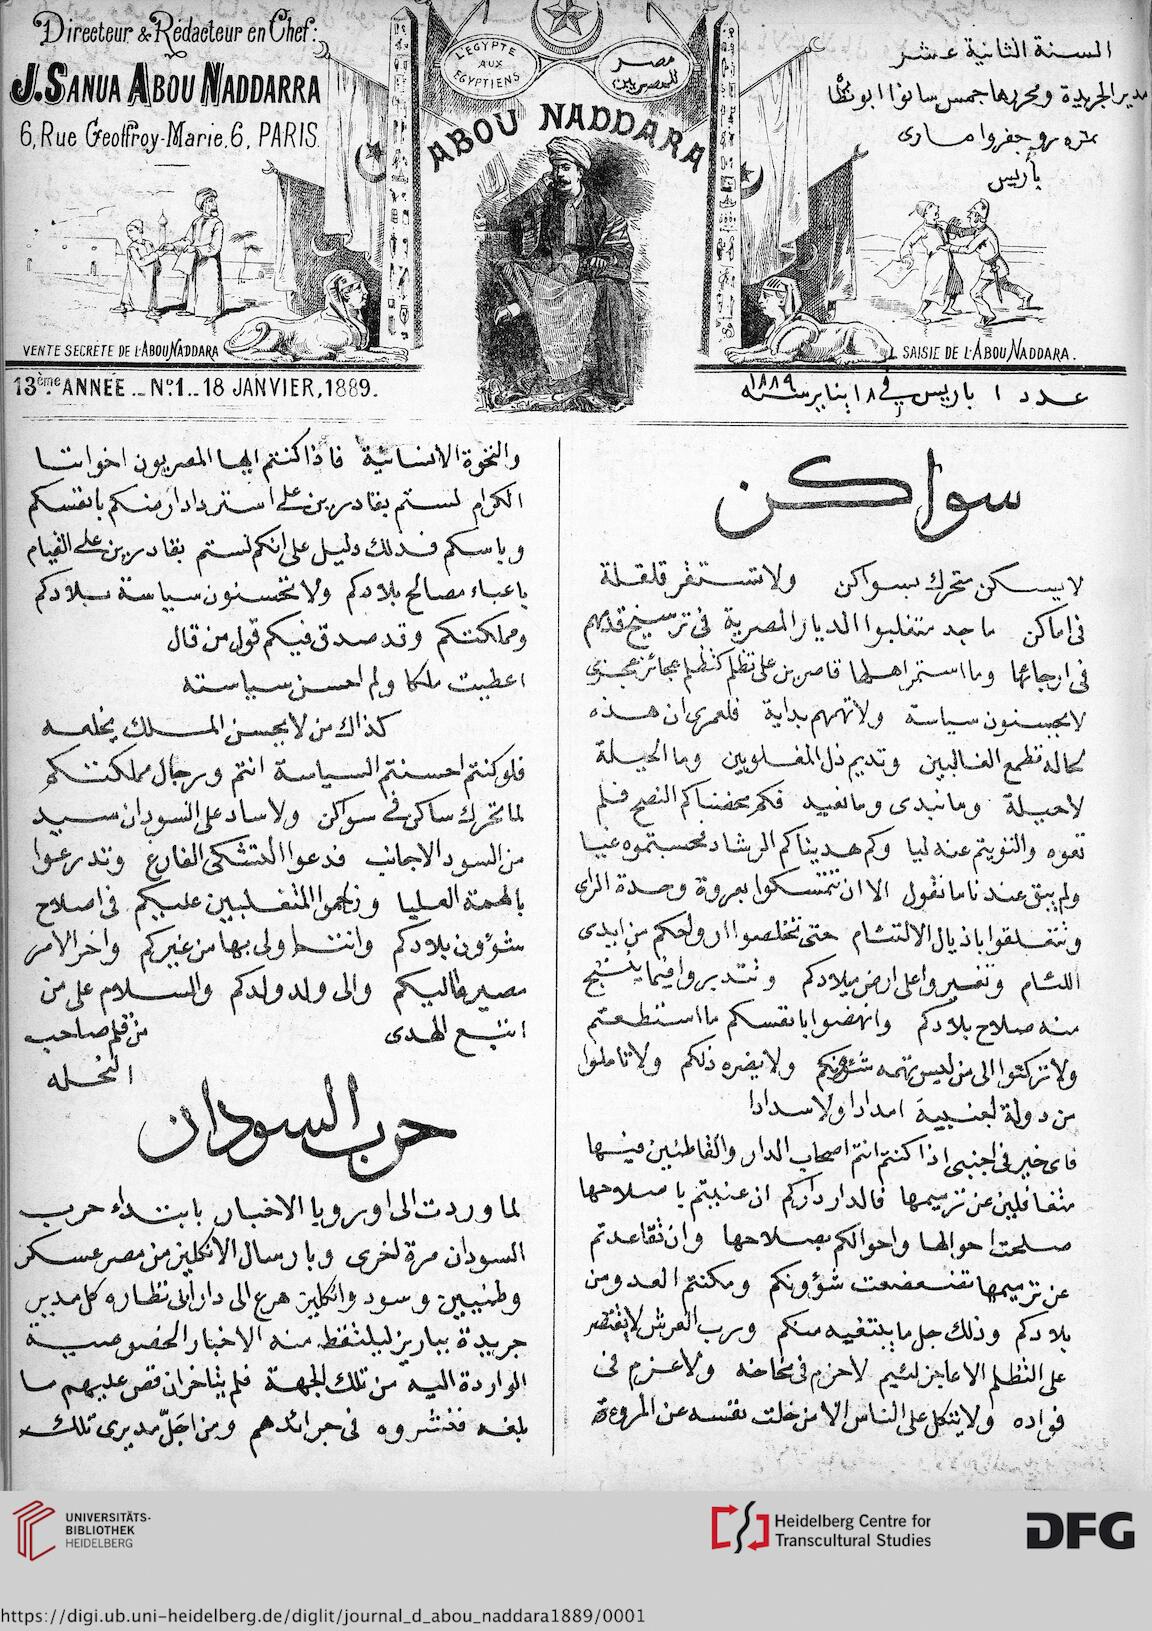 Directeur & Rédacteur en Chef:
J. SANUA ABOU NADDARRA
6, Rue Geoffroy-Marie, 6, PARIS.
L'EGYPTE
AUX
EGYPTIENS
مصر
للمصريين
ABOU NADDARA
السنة الثانية عشر
مدير الجريدة ومحررها جمس سانوا ابو نظا
نمره ٦ رو جفروا مارى
باريس
VENTE SECRÈTE DE L'ABOU NADDARA
SAISIE DE L'ABOU NADDARA.
13ème ANNÉE _ No 1 _ 18 JANVIER, 1889.
عدد ١ باريس في ١٨ يناير سنة ١٨٨٩
سواكن
لا يسكن متحرك بسواكن ولا تستقر قلقلة
فى اماكن ما جد متغلبوا الديار المصرية فى ترسيخ قدمهم
فى ارجائها وما استمر اهلها قاصرين على تظلم كتظلم عجائز عجزى
لا يحسنون سياسة ولا تهمهم بداية فلعمرى ان هذه
لحالة تطمع الغالبين وتديم ذل المغلوبين وما الحيلة
لا حيلة وما نبدى وما نعيد فكم محضناكم النصح فلم
تعوه والتويتم عنه ليا وكم هديناكم الرشاد فحسبتموه غيا
ولم يبق عندنا ما نقول الا ان تتمسكوا بعروة وحدة الراى
وتتعلقوا باذيال الالتئام حتى تخلصوا ارواحكم من ايدى
اللئام وتغيروا على ارض ميلادكم وتتدبروا فيما ينتج
منه صلاح بلادكم وانهضوا بانفسكم ما استطعتم
ولا تركنوا الى من ليس تهمه شؤونكم ولا يضره ذلكم ولا تاملوا
من دولة اجنبية امدادا ولا سدادا
فاى خير فى اجنبى اذا كنتم انتم اصحاب الدار والقاطنين فيها
متغافلين عن ترميمها فالدار داركم ان عنيتم باصلاحها
صلحت احوالها واحوالكم بصلاحها وان تقاعدتم
عن ترميمها تضعضعت شؤونكم ومكنتم العدو من
بلادكم وذلك جل ما يبتغيه منكم ورب العرش لا يقتصر
على التظلم الا عاجز لئيم لا حزم فى مخاخه ولا عزم فى
فواده ولا يتكل على الناس الا من خلت نفسه عن المروءة
والنخوة الانسانية فاذا كنتم ايها المصريون اخواننا
الكرام لستم بقادرين على استرداد ارضكم بانفسكم
وباسكم فذلك دليل على انكم لستم بقادرين على القيام
باعباء مصالح بلادكم ولا تحسنون سياسة بلادكم
ومملكتكم وقد صدق فيكم قول من قال
اعطيت ملكا ولم احسن سياسته
كذاك من لا يحسن الملك يخلعه
فلو كنتم احسنتم السياسة انتم ورجال مملكتكم
لما تحرك ساكن فى سواكن ولا ساد على السودان سيد
من السود الاجانب فدعوا التشكى الفارغ وتدرعوا
بالهمة العليا وزاحموا المتغلبين عليكم فى اصلاح
شؤون بلادكم وانتم اولى بها من غيركم واخر الامر
مصيرها اليكم والى ولد ولدكم والسلام على من
اتبع الهدى
من قلم صاحب
النحله
حرب السودان
لما وردت الى اوروپا الاخبار بابتداء حرب
السودان مرة اخرى وبارسال الانكليز من مصر عسكر
وطنيين وسود وانكليز هرع الى دار ابى نظاره كل مدير
جريدة بباريز ليلتقط منه الاخبار الخصوصية
الواردة اليه من تلك الجهة فلم يتاخر ان قص عليهم ما
بلغه فنشروه فى جرائدهم ومن اجل مديرى تلك
UNIVERSITÄTS-
BIBLIOTHEK
HEIDELBERG
Heidelberg Centre for
Transcultural Studies
DFG
https://digi.ub.uni-heidelberg.de/diglit/journal_d_abou_naddara1889/0001